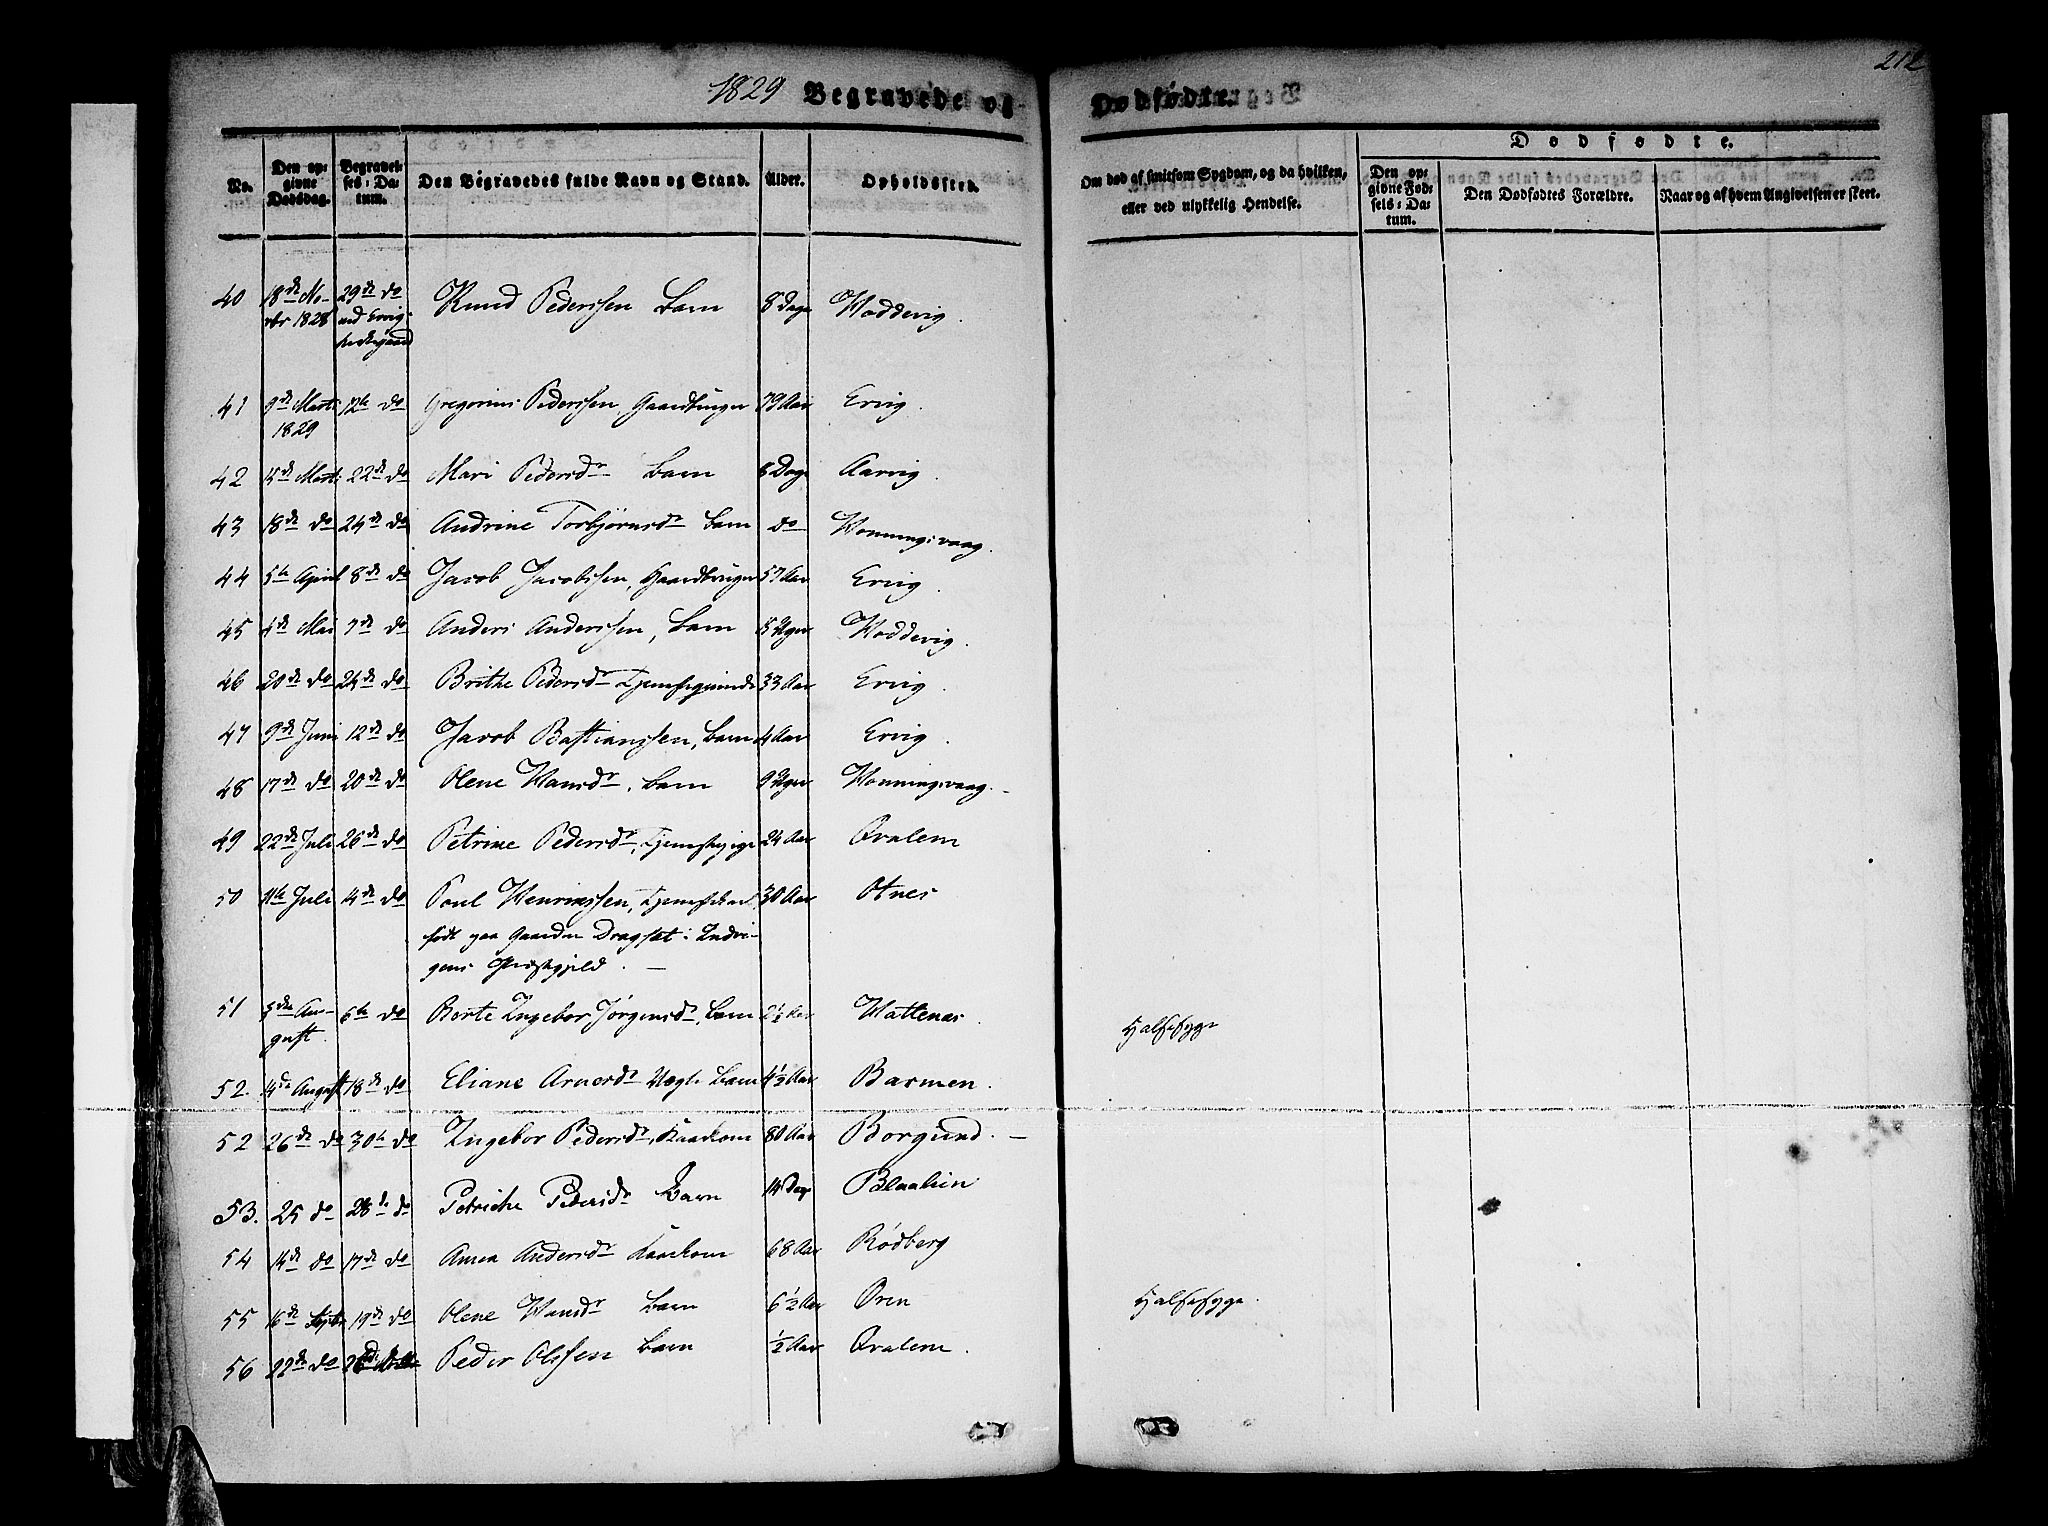 212
1829 Begravede og Dødfødte.
No. Den opgivne Dødsdag. Begravelses-Datum. Den Begravedes fulde Navn og Stand. Alder. Opholdssted. Om død af smitsom Sygdom, og da hvilken, eller ved ulykkelig Hendelse. Dødfødte. Den opgivne Fødsels-Datum. Den Dødfødtes Forældre. Naar og af hvem Angivelsen er skeet.
40 18de No- 29de do Knud Pederssen Barn 8 Dage Hoddevig.
vbr 1828 ved Ervig
kirkegaard
41 9de Marts 12te do Gregorius Pederssen, Gaardbruger 79 Aar Ervig.
1829
42 15de Marts 22de do Mari Pedersdr Barn 8 Dage Aarvig.
43 18de do 24de do Andrine Torbjørnsdr Barn do Honningsvaag.
44 5te April 8de do Jacob Jacobssen, Gaardbruger 57 Aar Ervig.
45 4de Mai 7de do Anders Anderssen, Barn 5 Uger Hoddevig.
46 20de do 24de do Brithe Pedersdr 33 Aar Ervig.
47 9de Juni 12te do Jacob Bastianssen, Barn 4 Aar Ervig.
48 17de do 20de do Olene Hansdr, Barn 9 Uger Honningsvaag.
49 22de Juli 26de do Petrine Pedersdr, Tjenestepige 24 Aar Qvalem
50 11te Juli 14de do Poul Henrikssen, Tjenestekarl 30 Aar Otnes
født paa Gaarden Dragset i Indvi-
gens Præstegjeld.
51 3die Au- 6te do Berte Ingebor Jørgensdr, Barn 2½ Aar Hattenæs.
gust. Halsesyge
52. 14de August 18de do Eliane Arnesdr Uægte Barn 4½ Aar Barmen.
52 26de do 30te do Ingebor Pedersdr, Kaarkone 80 Aar Borgund.
53. 25 do 28de do Petriche Pedersdr Barn 14 Dage Blaalien
54 14de do 17de do Anna Andersdr Kaarkone 68 Aar Rødberg
55 16de Septbr 19de do Olene Hansdr Barn 6½ Aar Øren Halsesyge.
56 22de do Peder Olssen Barn ½ Aar Qvalem.